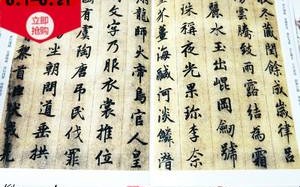 6.1-6.21
立即
抢购
收冬藏閏餘成歲律呂
雲騰致雨露結為霜
麗水玉出崐岡劒號
珠稱夜光果珍李奈
芥薑海鹹河淡鱗潛
翔龍師火帝鳥官人皇
文字乃服衣裳推位
國有虞陶唐弔民伐罪
坐朝問道垂拱
黎首臣伏戎羌